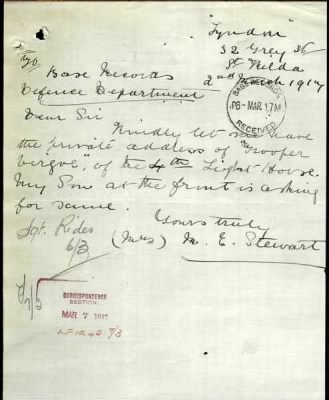 "Lyndon"
52 Grey St
St Kilda
2nd March 1917
Base Records
Defence Department
BASE RECORDS
6-MAR.17
RECEIVED
Dear Sir
Kindly let me have
the private address of "Trooper
Virgoe", of the 4th Light Horse.
My Son at the front is asking
for same.
Yours truly
(Mrs) M. E. Stewart
Sgt. Rides
6/3
CORRESPONDENCE
SECTION
MAR 7 1917
7/3